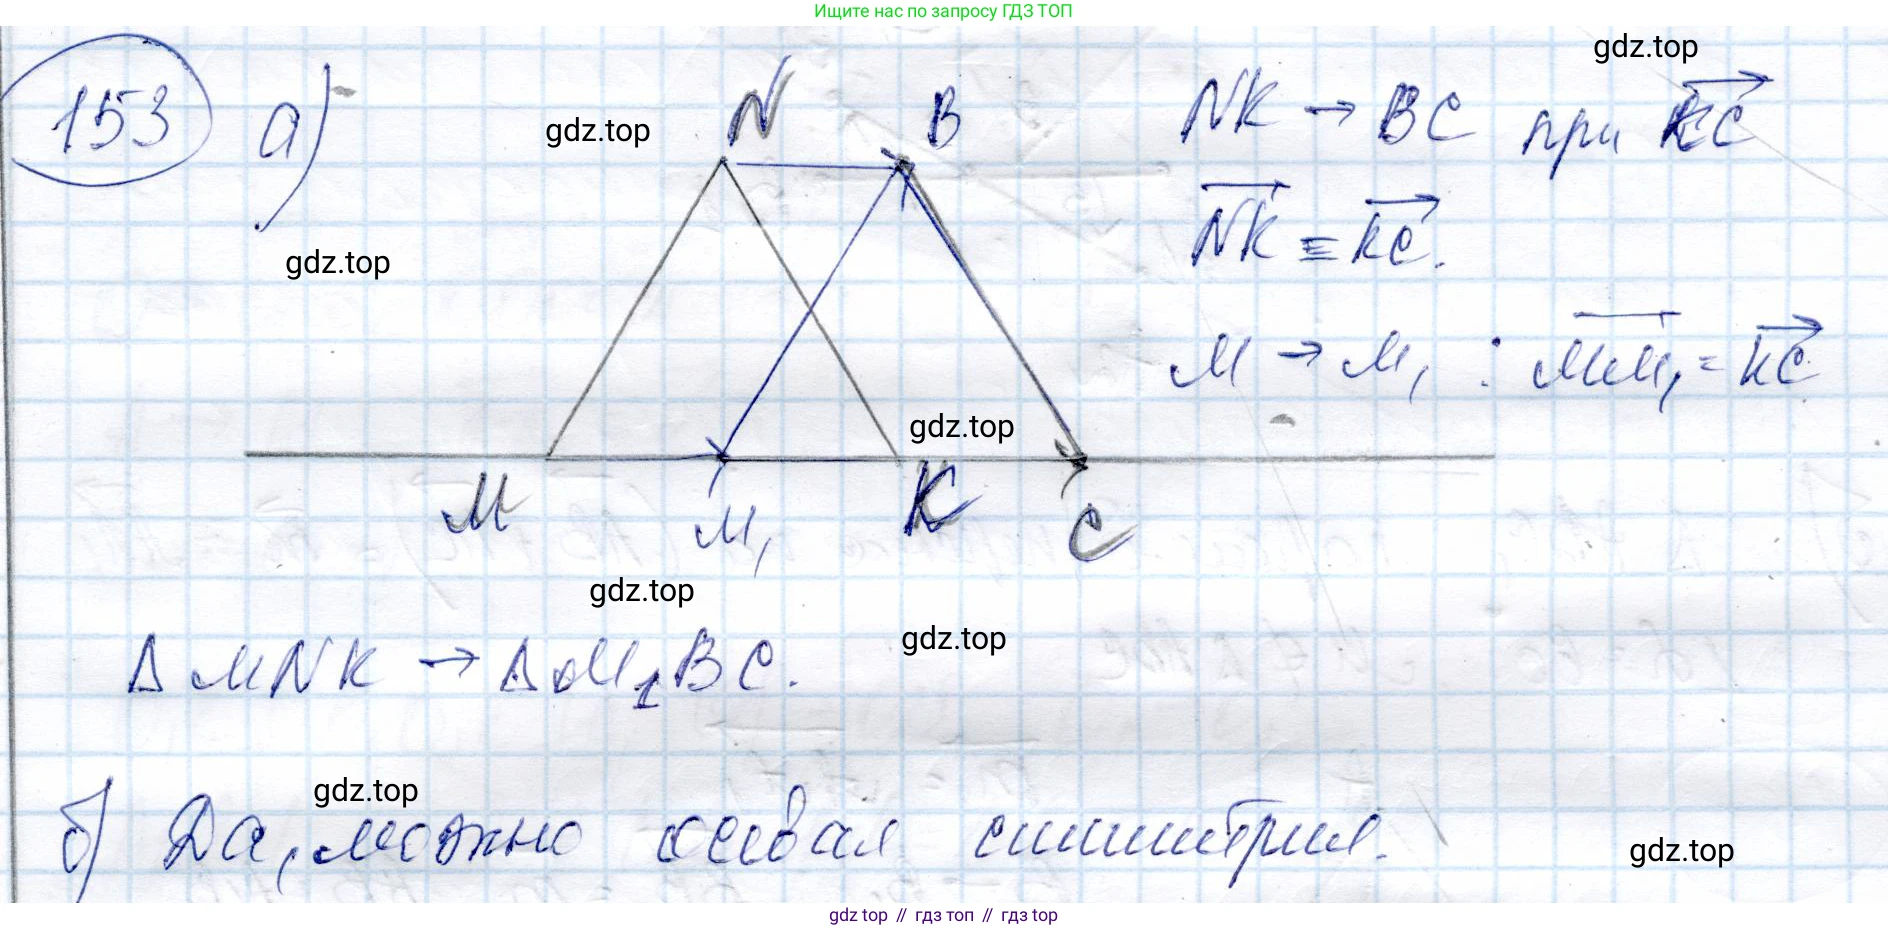 Ищите нас по запросу ГДЗ ТОП
gdz.top
153 а) N B NK → BC при KC
gdz.top
NK = KC.
gdz.top
M → M₁ : MM₁ = KC
gdz.top
M M₁ K C
gdz.top
gdz.top
Δ MNK → Δ M₁BC.
gdz.top
б) Да, можно осевая симметрия.
gdz.top
gdz top // гдз топ // гдз top